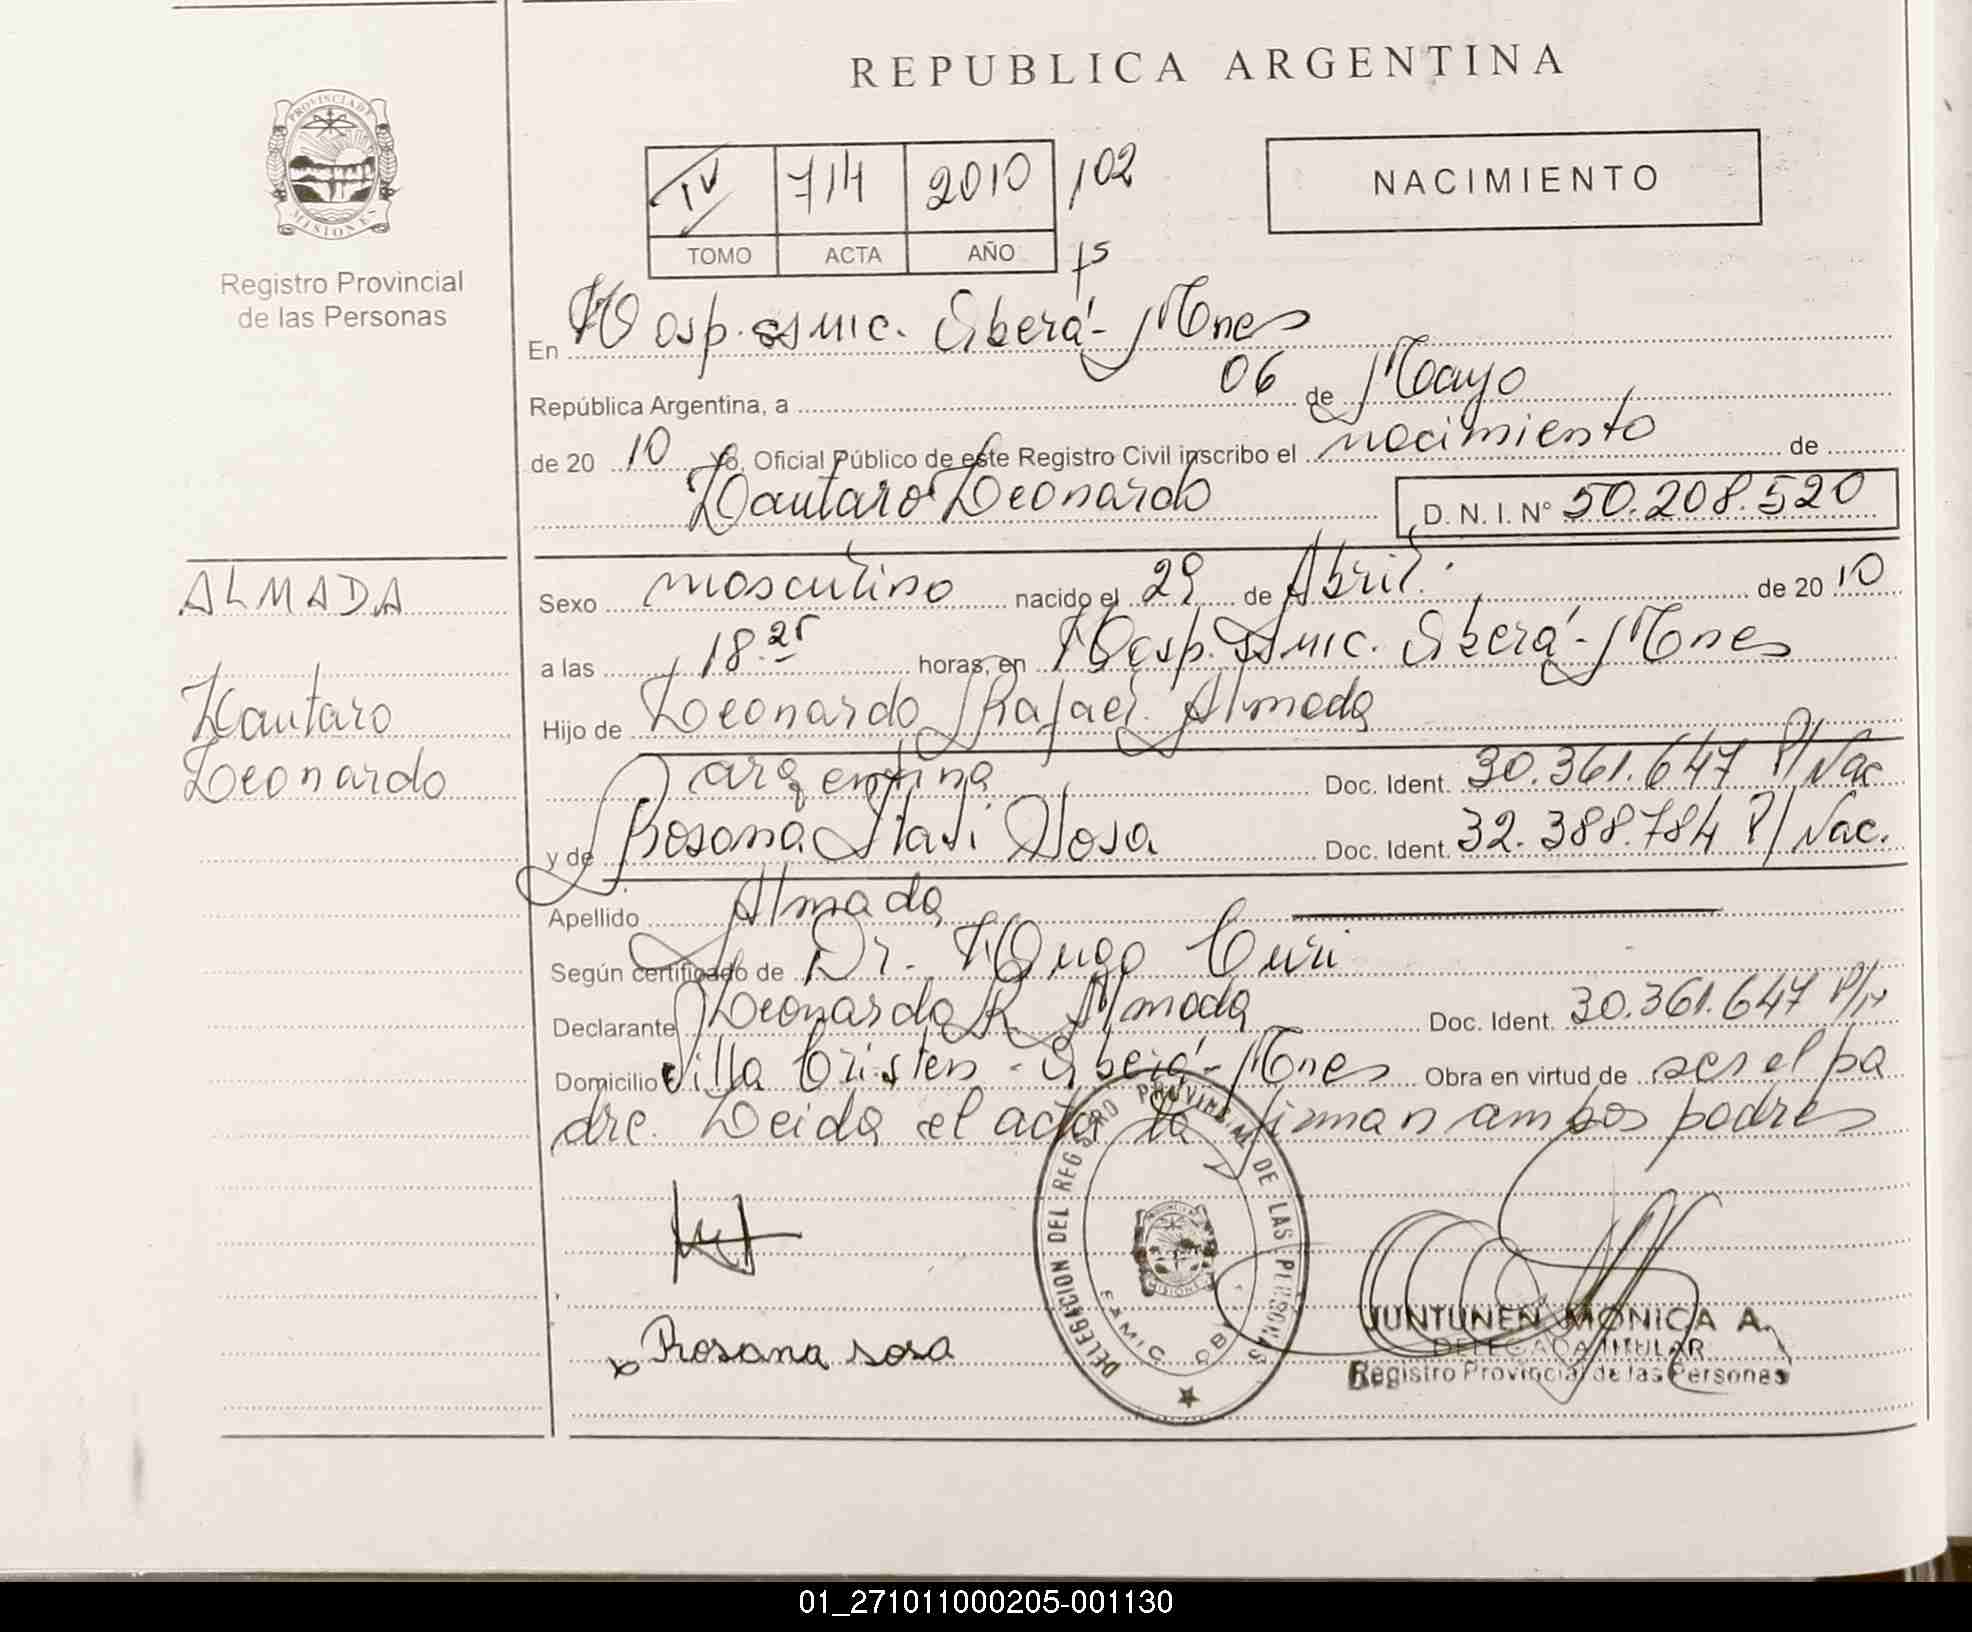 REPUBLICA ARGENTINA
PROVINCIA DE
MISIONES
Registro Provincial
de las Personas
IV 714 2010 102
TOMO ACTA AÑO
NACIMIENTO
En Hosp. ssmic. Oberá - Mnes
República Argentina, a 06 de Mayo
de 20 10 yo, Oficial Público de este Registro Civil inscribo el nacimiento de
Lautaro Leonardo D. N. I. Nº 50.208.520
ALMADA
Lautaro
Leonardo
Sexo masculino nacido el 29 de Abril. de 20 10
a las 18.25 horas, en Hosp. ssmic. Oberá - Mnes
Hijo de Leonardo Rafael Almada
argentina Doc. Ident. 30.361.647 P/ Nac
y de Rosana Itati Sosa Doc. Ident. 32.388.784 P/ Nac.
Apellido Almada
Según certificado de Dr. Hugo Curi
Declarante Leonardo R Almada Doc. Ident. 30.361.647
Domicilio Villa Cristen - Oberá - Mnes Obra en virtud de ser el pa
dre. Leida el acta la firman ambos padres
DELEGACION DEL REGISTRO PROVINCIAL DE LAS PERSONAS
Rosana sosa
JUNTUNEN MONICA A.
DELEGADA TITULAR
Registro Provincial de las Personas
01_271011000205-001130